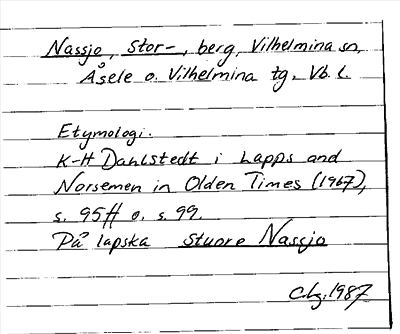 Nassjo, Stor-, berg, Vilhelmina sn,
Åsele o. Vilhelmina tg. Vb. l.
Etymologi.
K-H Dahlstedt i Lapps and
Norsemen in Olden Times (1967),
s. 95ff o. s. 99.
På lapska Stuore Nassjo
1987